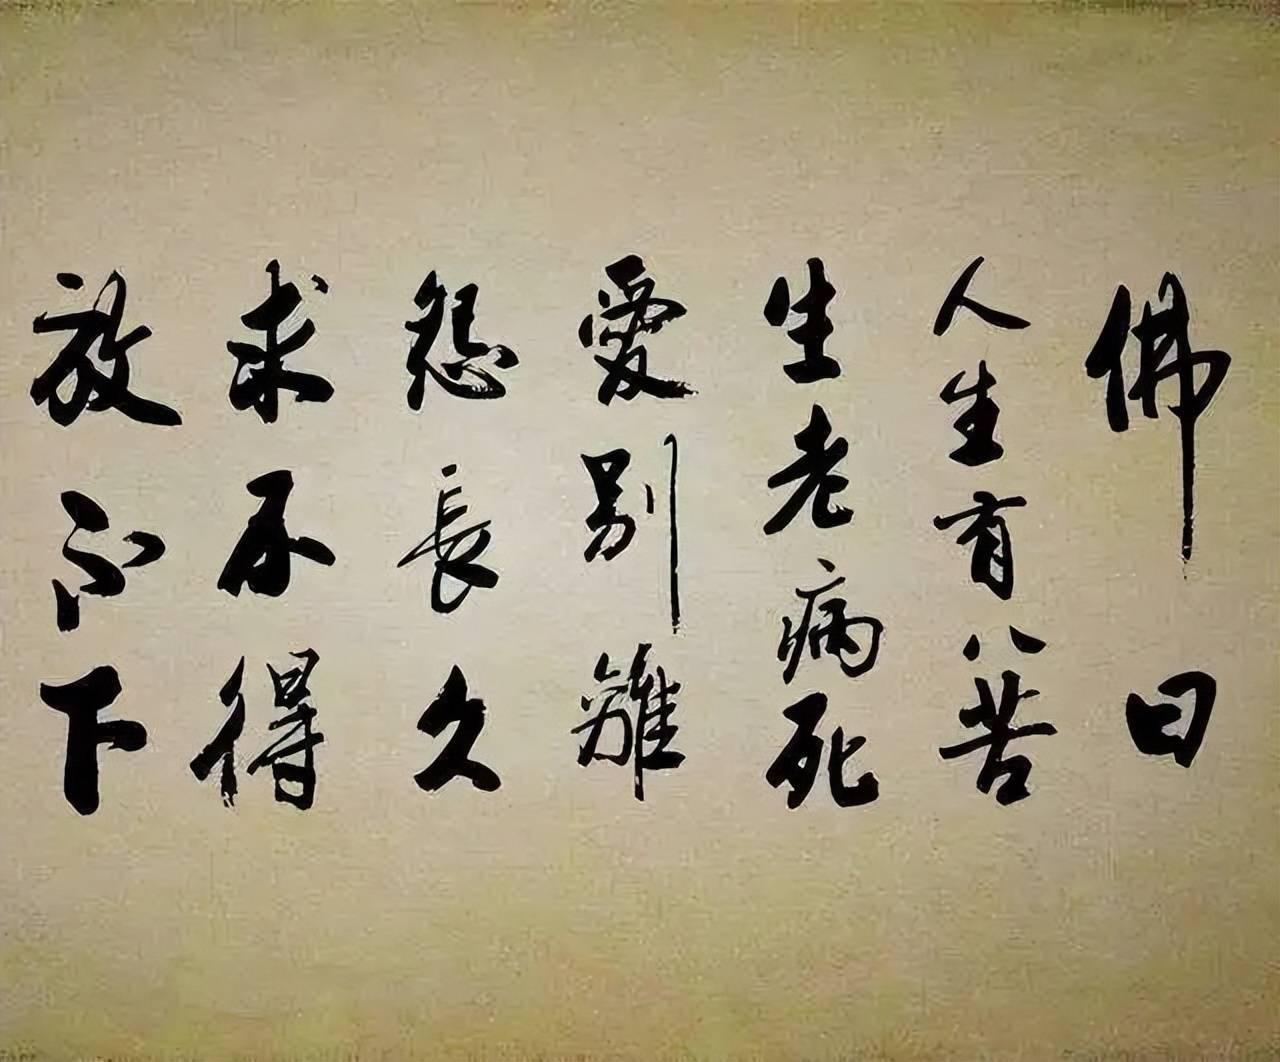 佛曰
人生有八苦
生老病死
愛别離
怨長久
求不得
放不下